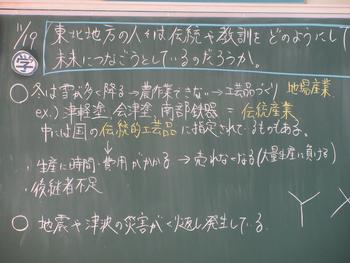 11/9
東北地方の人々は伝統や教訓をどのようにして
学 未来につなごうとしているのだろうか。
○冬は雪が多く降る→農作業できない→工芸品づくり 地場産業
ex.) 津軽塗, 会津塗, 南部鉄器 = 伝統産業
中には国の伝統的工芸品に指定されているものもある。
・生産に時間・費用がかかる→売れなくなる(大量生産に負ける)
・後継者不足
○地震や津波の災害がくり返し発生している。